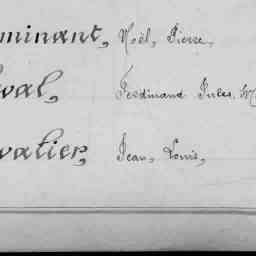 minant, Noël, Pierre,
val, Ferdinand Jules,
valier, Jean, Louis,